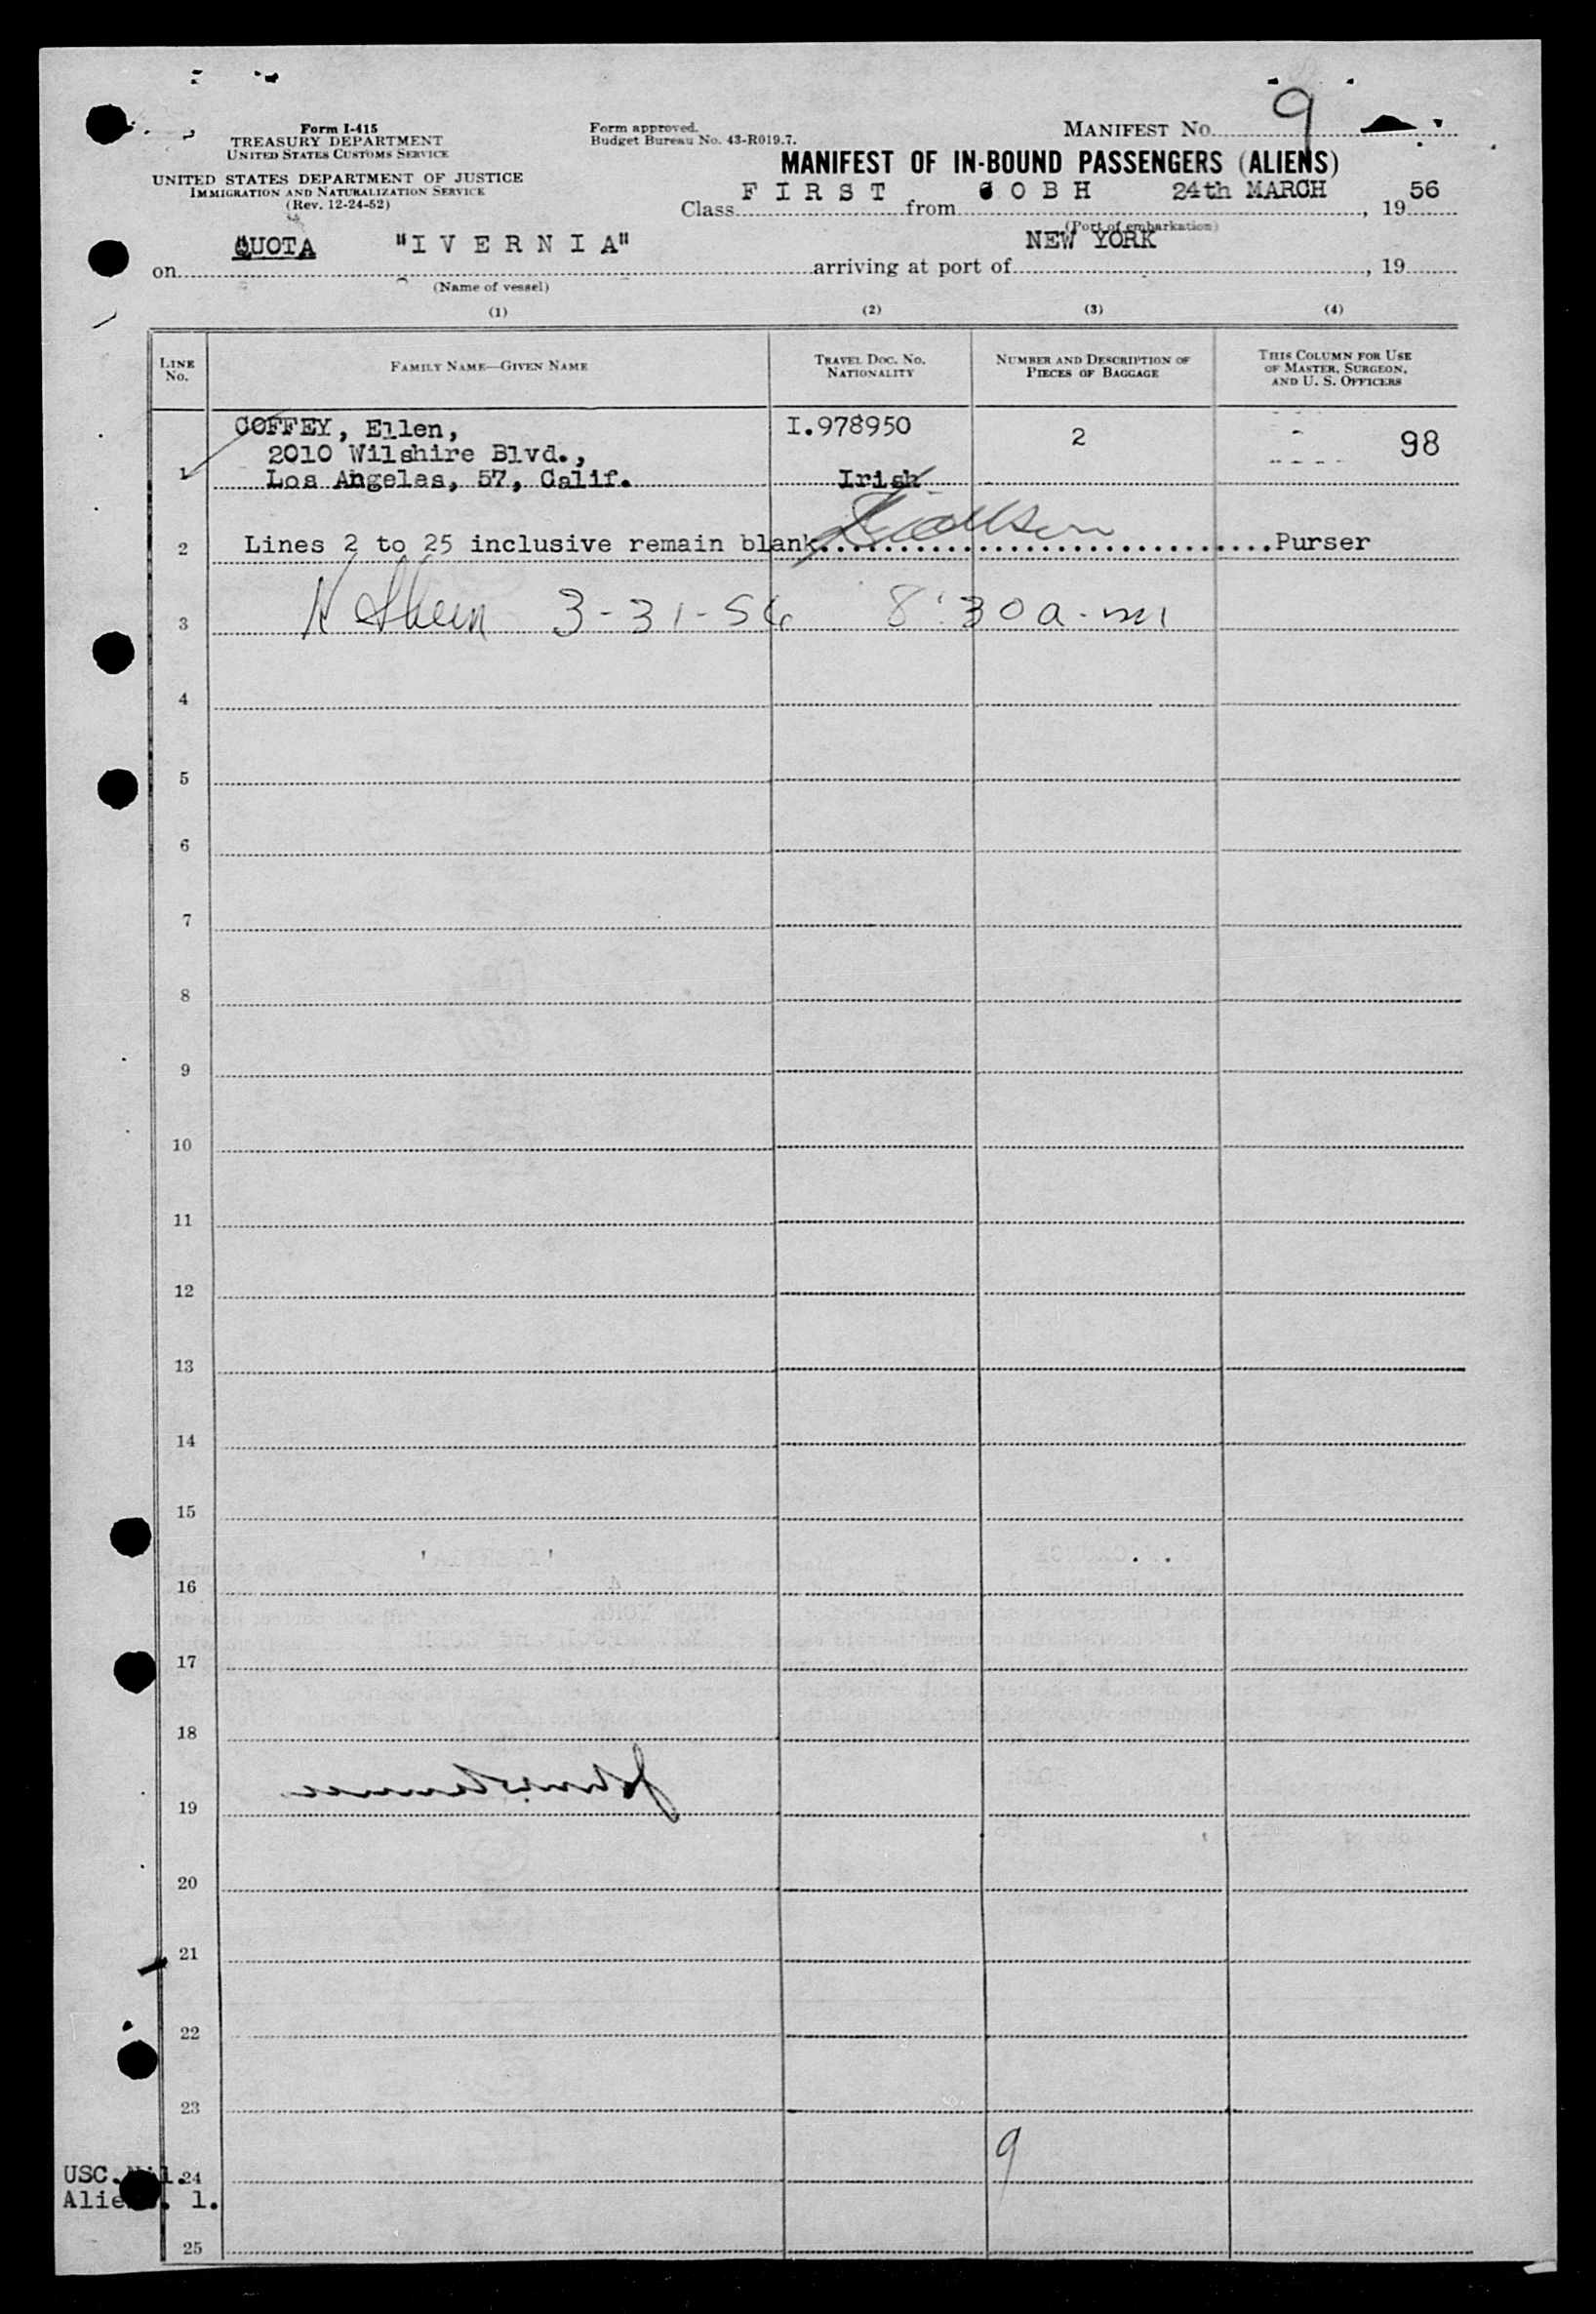 MANIFEST NO. 9
Form I-415
TREASURY DEPARTMENT
UNITED STATES CUSTOMS SERVICE
UNITED STATES DEPARTMENT OF JUSTICE
IMMIGRATION AND NATURALIZATION SERVICE
(Rev. 12-24-52)
Form approved.
Budget Bureau No. 43-R019.7.
MANIFEST OF IN-BOUND PASSENGERS (ALIENS)
Class FIRST from COBH 24th MARCH, 19 56
(Port of embarkation)
on QUOTA "IVERNIA" arriving at port of NEW YORK, 19
(Name of vessel)
(1) (2) (3) (4)
LINE No. FAMILY NAME—GIVEN NAME TRAVEL DOC. NO. NATIONALITY NUMBER AND DESCRIPTION OF PIECES OF BAGGAGE THIS COLUMN FOR USE OF MASTER, SURGEON, AND U. S. OFFICERS
COFFEY, Ellen, I.978950 2 98
2010 Wilshire Blvd.,
1 Los Angeles, 57, Calif. Irish
2 Lines 2 to 25 inclusive remain blank. Purser
3 3-31-56 8:30 a.m
4
5
6
7
8
9
10
11
12
13
14
15
16
17
18
19
20
21
22
23
9
USC. Nil. 24
Aliens. 1.
25